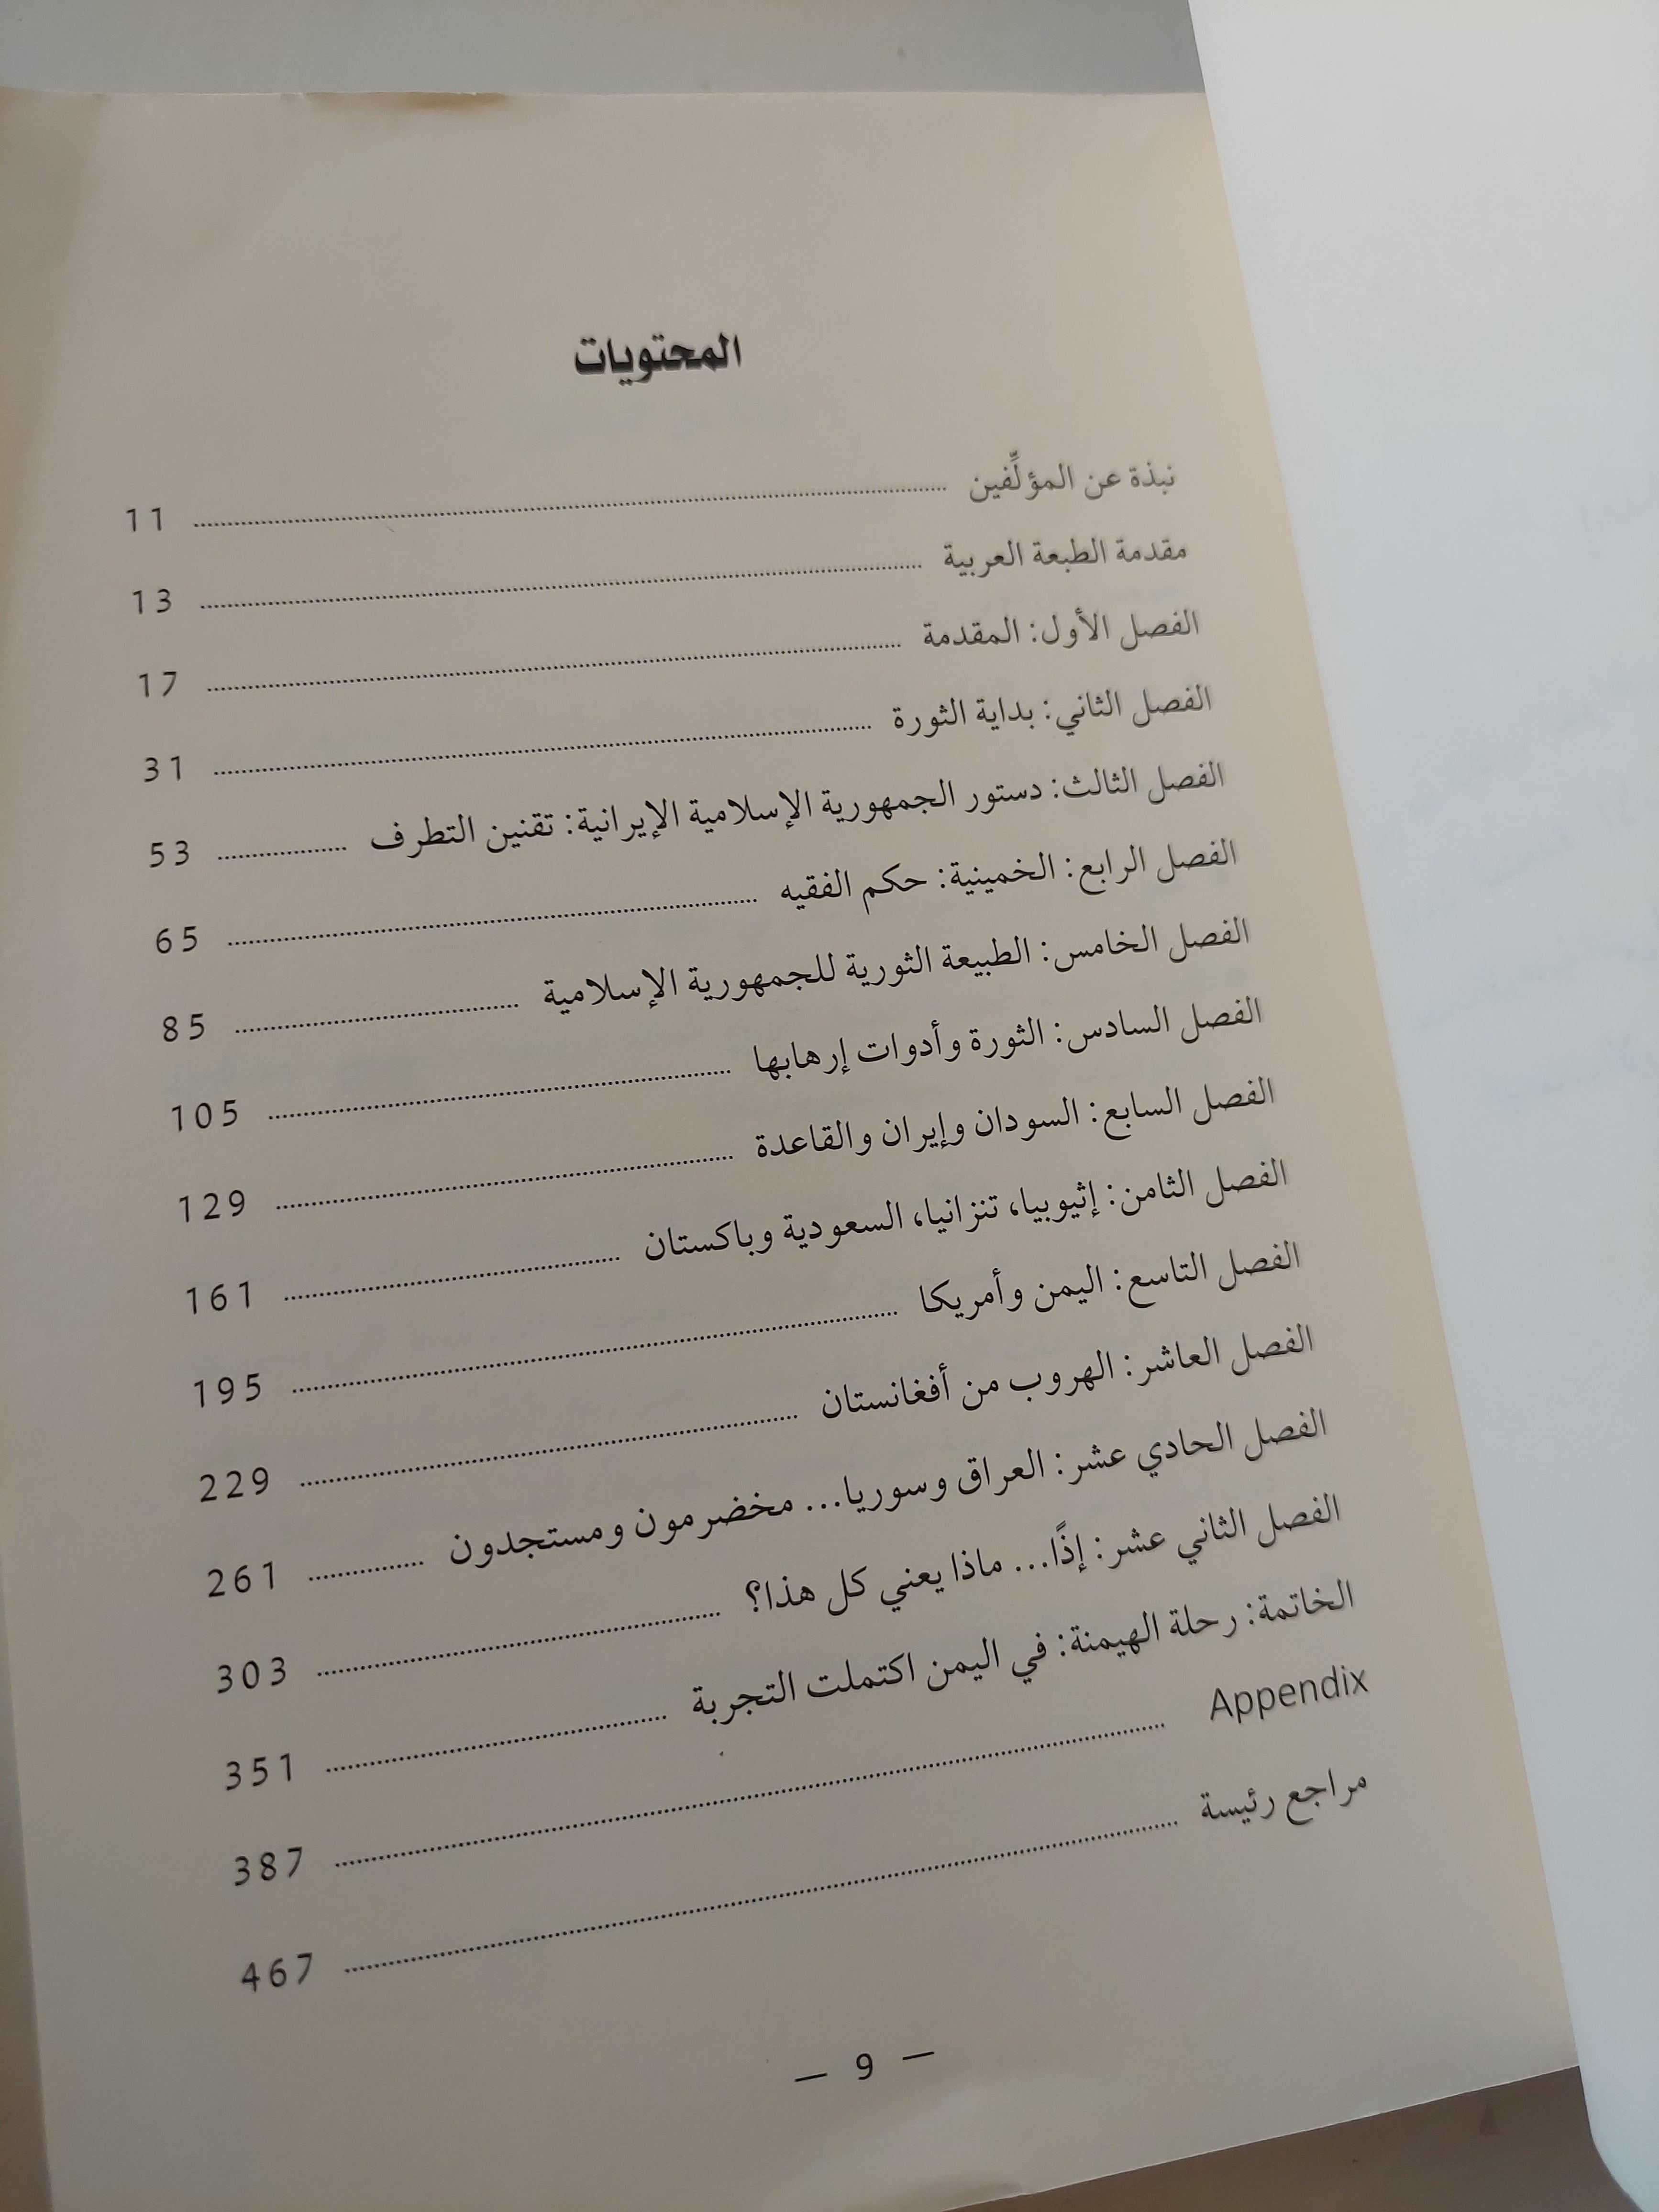 المحتويات
نبذة عن المؤلِّفين ........ 11
مقدمة الطبعة العربية ........ 13
الفصل الأول: المقدمة ........ 17
الفصل الثاني: بداية الثورة ........ 31
الفصل الثالث: دستور الجمهورية الإسلامية الإيرانية: تقنين التطرف ........ 53
الفصل الرابع: الخمينية: حكم الفقيه ........ 65
الفصل الخامس: الطبيعة الثورية للجمهورية الإسلامية ........ 85
الفصل السادس: الثورة وأدوات إرهابها ........ 105
الفصل السابع: السودان وإيران والقاعدة ........ 129
الفصل الثامن: إثيوبيا، تنزانيا، السعودية وباكستان ........ 161
الفصل التاسع: اليمن وأمريكا ........ 195
الفصل العاشر: الهروب من أفغانستان ........ 229
الفصل الحادي عشر: العراق وسوريا... مخضرمون ومستجدون ........ 261
الفصل الثاني عشر: إذًا... ماذا يعني كل هذا؟ ........ 303
الخاتمة: رحلة الهيمنة: في اليمن اكتملت التجربة ........ 351
Appendix ........ 387
مراجع رئيسة ........ 467
— 9 —